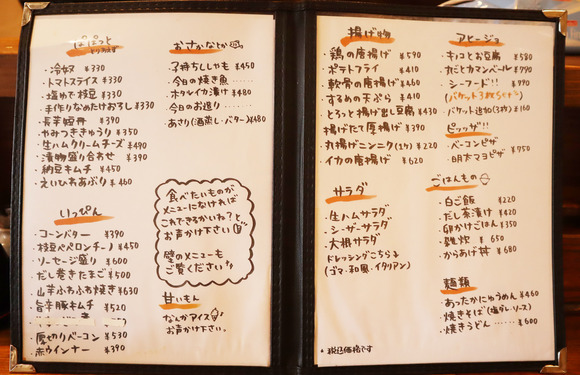 ぱぱっと
とりあえず
・冷奴 ¥330
・トマトスライス ¥330
・塩ゆで枝豆 ¥330
・手作りなめたけおろし ¥330
・長芋短冊 ¥390
・やみつききゅうり ¥350
・生ハムクリームチーズ ¥490
・漬物盛り合わせ ¥390
・納豆キムチ ¥450
・えいひれあぶり ¥460
いっぴん
・コーンバター ¥390
・枝豆ペペロンチーノ ¥450
・ソーセージ盛り ¥600
・だし巻きたまご ¥500
・山芋ふわふわ焼き ¥630
・旨辛豚キムチ ¥520
・厚切りベーコン ¥530
・赤ウインナー ¥390
おさかなとか
・子持ちししゃも ¥450
・今日の焼き魚……
・ホタルイカ漬け ¥480
・今日のお造り ……
・あさり(酒蒸し・バター) ¥480
食べたいものが
メニューになければ
これできるかいね?と
お声かけ下さい
壁のメニューも
ご覧ください♪
甘いもん
なんかアイス
お声かけ下さい。
揚げ物
・鶏の唐揚げ ¥590
・ポテトフライ ¥410
・軟骨の唐揚げ ¥460
・するめの天ぷら ¥410
・とろっと揚げ出し豆腐 ¥430
・揚げたて厚揚げ ¥390
・丸揚げニンニク(1ケ) ¥220
・イカの唐揚げ ¥620
サラダ
・生ハムサラダ
・シーザーサラダ
・大根サラダ
ドレッシングこちら
(ゴマ・和風・イタリアン)
* 税込価格です
アヒージョ
・キノコとお豆腐 ¥580
・カマンベール ¥790
・シーフード!! ¥990
・バケット追加(3枚) ¥160
ピッツァ!!
・ベーコンピザ
・明太マヨピザ
¥750
ごはんもの
・白ご飯 ¥220
・だし茶漬け ¥420
・卵かけごはん ¥350
・雑炊 ¥650
・からあげ丼 ¥680
麺類
・あったかにゅうめん ¥460
・焼きそば(塩ダレ・ソース)
・焼きうどん …… ¥600